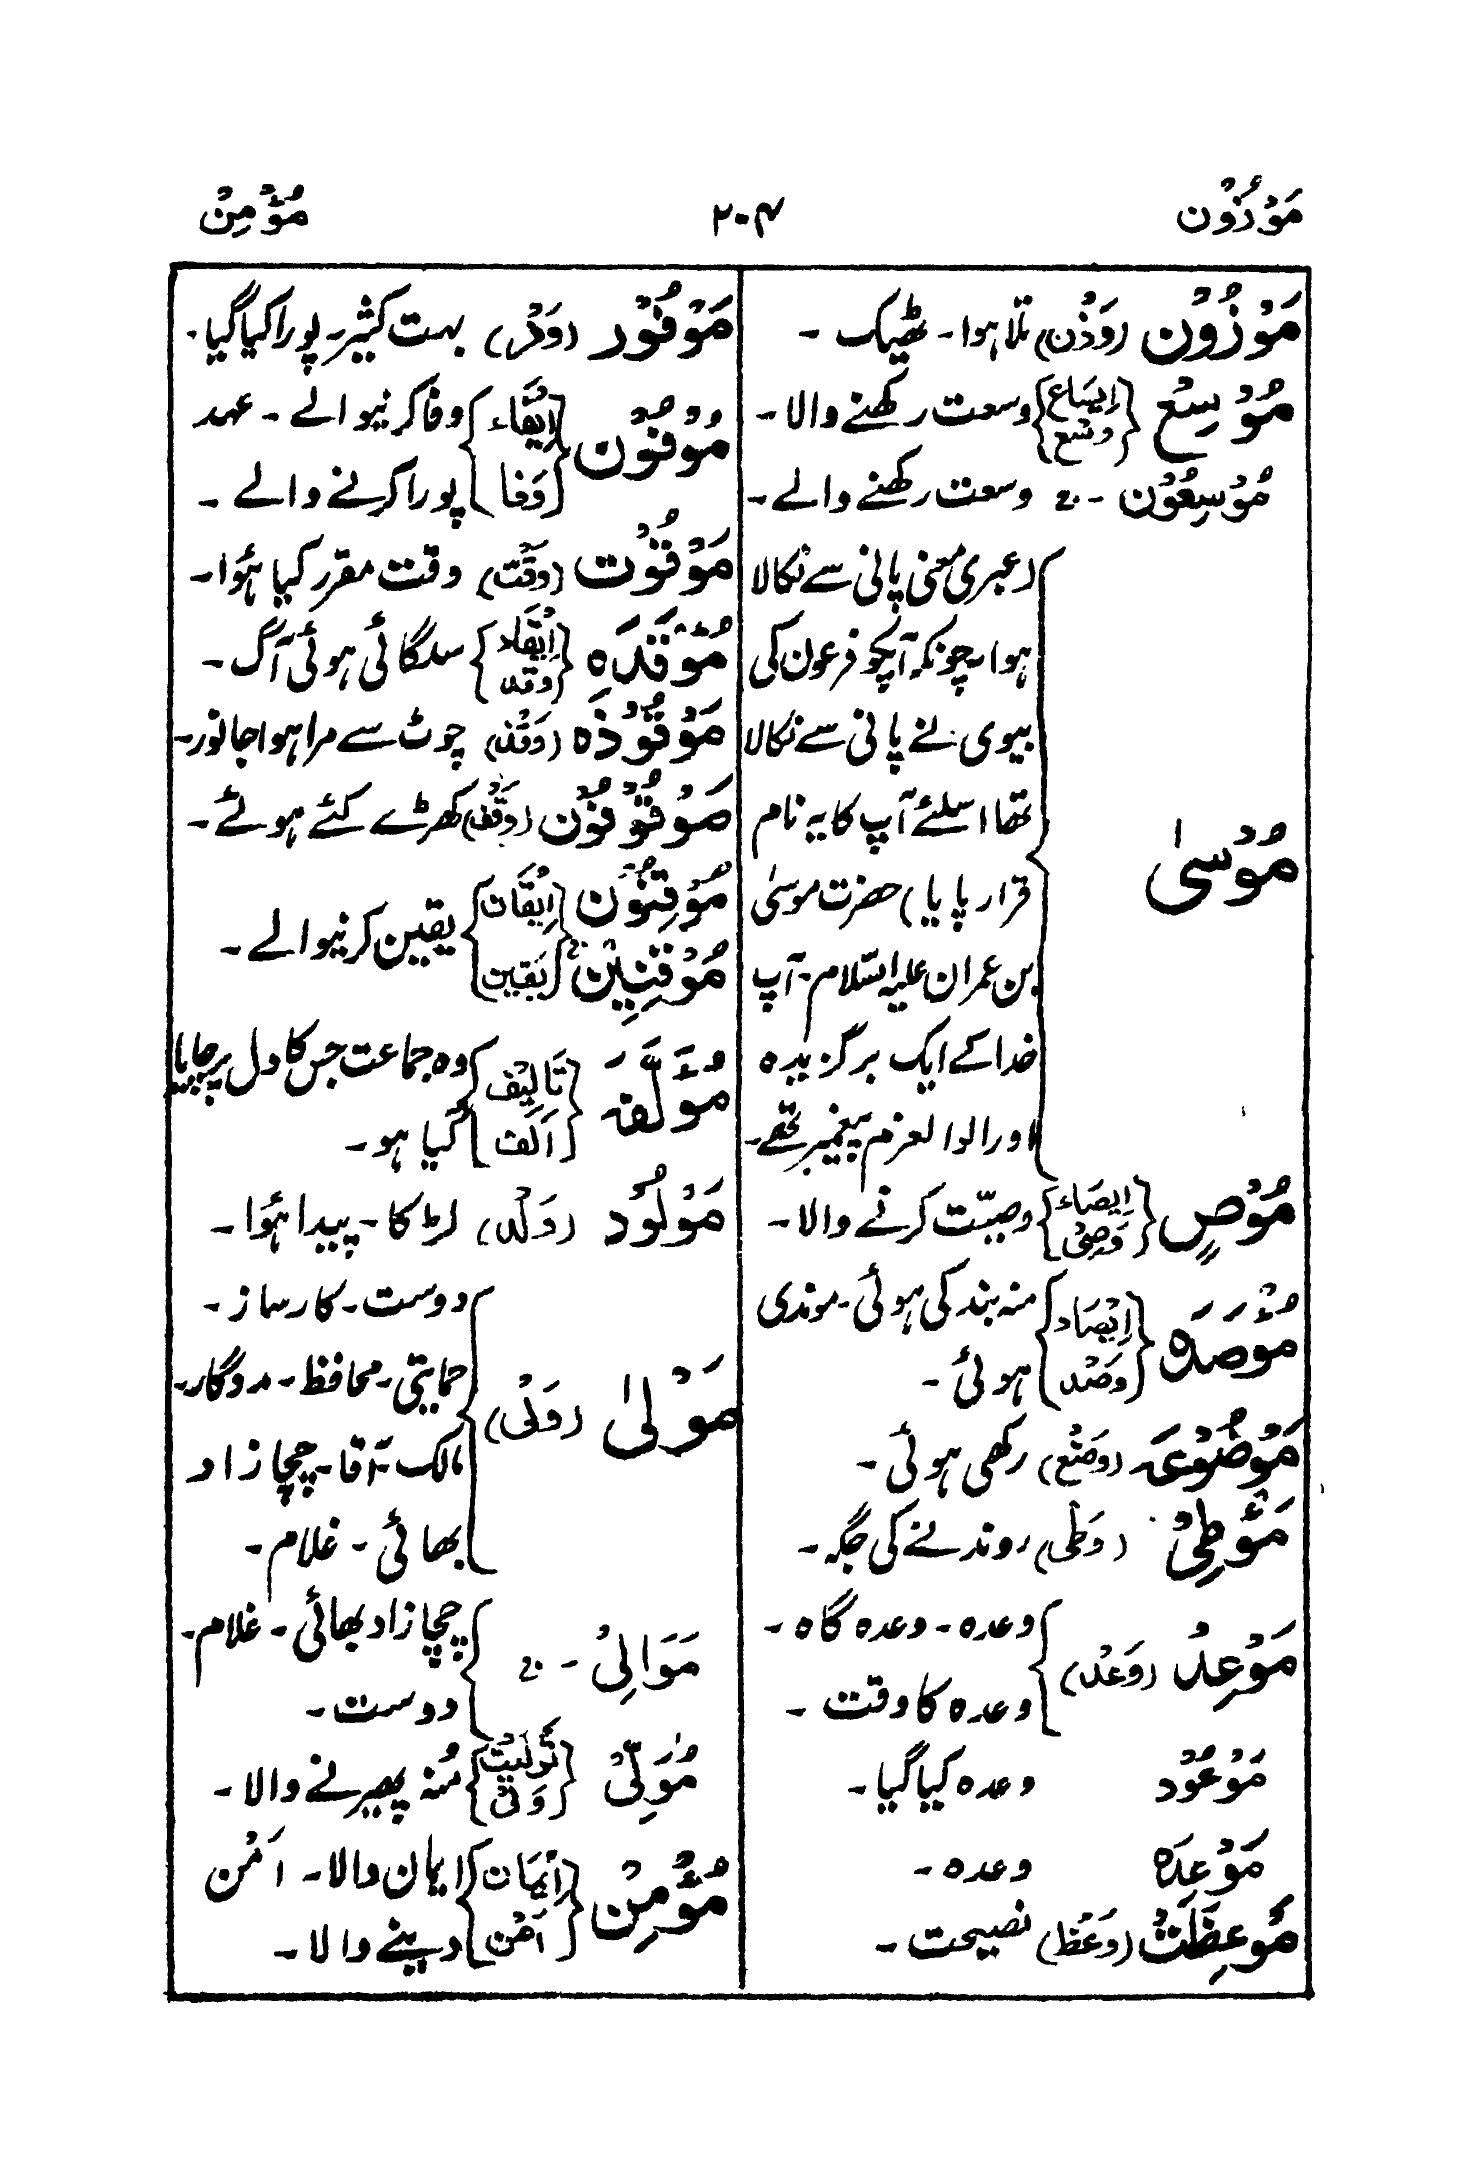 مَوْزُوْن ۲۰۴ مُؤْمِنْ
مَوْزُوْن (وَزْن) تلا ہوا۔ ٹھیک ۔
مُوْسِعْ {اِیسَاع وسْع} وسعت رکھنے والا۔
مُوْسِعُوْن ۔ ج وسعت رکھنے والے۔
مُوْسیٰ
(عبری معنی پانی سے نکالا
ہوا۔ چونکہ آپکو فرعون کی
بیوی نے پانی سے نکالا
تھا اسلئے آپ کا یہ نام
قرار پایا) حضرت موسیٰ
بن عمران علیہ السّلام۔ آپ
خدا کے ایک برگزیدہ
اور الوالعزم پیغمبر تھے۔
مُوْصٍ {اِیصَاء وَصْیٌ} وصیّت کرنے والا۔
مُؤْصَدَہ {اِیْصَاد وَصْد} منہ بند کی ہوئی۔ موندی
ہوئی ۔
مَوْضُوْعَہ (وَضْع) رکھی ہوئی ۔
مَوْطِئْ (وَطْی) روندنے کی جگہ ۔
مَوْعِدْ (وَعْد) وعدہ ۔ وعدہ گاہ ۔
وعدہ کا وقت ۔
مَوْعُوْد وعدہ کیا گیا ۔
مَوْعِدَہ وعدہ ۔
مَوْعِظَتْ (وَعْظ) نصیحت ۔
مَوْفُوْر (وَفْر) بہت کثیر۔ پورا کیا گیا۔
مُوْفُوْن {اِیْفَاء وَفَا} وفا کرنیوالے ۔ عہد
پورا کرنے والے ۔
مَوْقُوْت (وَقْت) وقت مقرر کیا ہُوا۔
مُوْقَدَہ {اِیْقَاد وقد} سلگائی ہوئی آگ ۔
مَوْقُوْذَہ (وَقْذ) چوٹ سے مرا ہوا جانور۔
مَوْقُوْفُوْن (وَقْف) کھڑے کئے ہوئے ۔
مُوْقِنُوْن {اِیْقَان
مُوْقِنِیْن یَقِین} یقین کرنیوالے ۔
مُؤَلَّفَہ {تَالِیْف اَلَف} وہ جماعت جس کا دل پرچایا
گیا ہو ۔
مَوْلُوْد (وَلْد) لڑکا ۔ پیدا ہُوا ۔
مَوْلیٰ (وَلْی)
دوست ۔ کارساز ۔
حمایتی ۔ محافظ ۔ مددگار۔
مالک ۔ آقا ۔ چچا زاد
بھائی ۔ غلام ۔
مَوَالِیْ ۔ ج چچا زاد بھائی ۔ غلام۔
دوست ۔
مُوَلِّیْ {تَوْلِیَت وَلْی} مُنہ پھیرنے والا ۔
مُؤْمِنْ {اِیْمَان اَمْن} ایمان والا ۔ امْن
دینے والا ۔